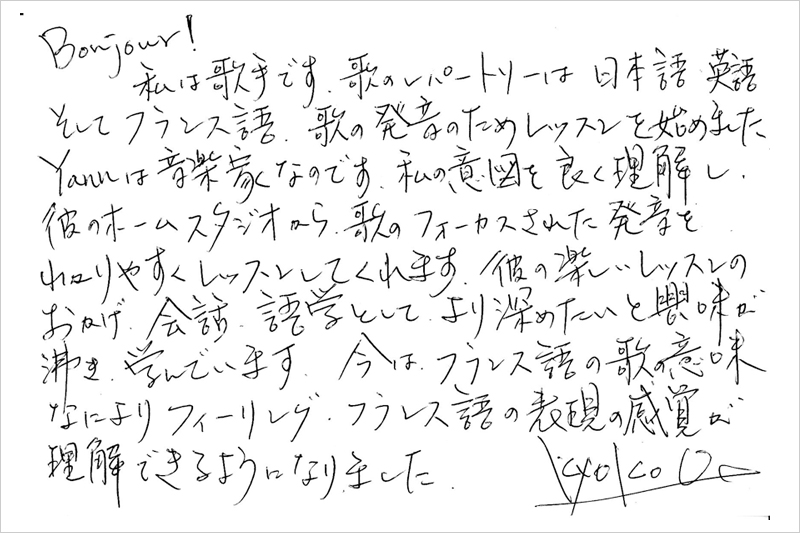 Bonjour!
私は歌手です. 歌のレパートリーは 日本語 英語
そして フランス語. 歌の 発音のためレッスンを始めました
Yannは音楽家なのです. 私の意図を 良く理解し.
彼のホームスタジオから. 歌の フォーカスされた 発音を
わかりやすくレッスンしてくれます. 彼の楽しいレッスンの
おかげ. 会話. 語学として より深めたいと興味が
沸き. 学んでいます. 今は. フランス語の歌の意味
なによりフィーリング. フランス語の表現の感覚が
理解できるようになりました. Kyoko O